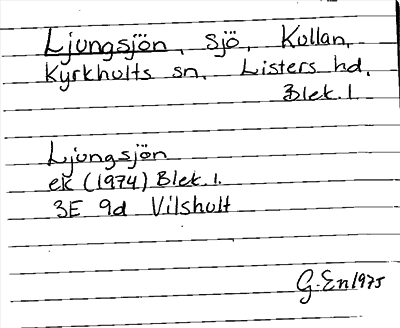 Ljungsjön, sjö, Kullan,
Kyrkhults sn. Listers hd.
Blek. l.
Ljungsjön
ek (1974) Blek. l.
3E 9d Vilshult
G. En 1975